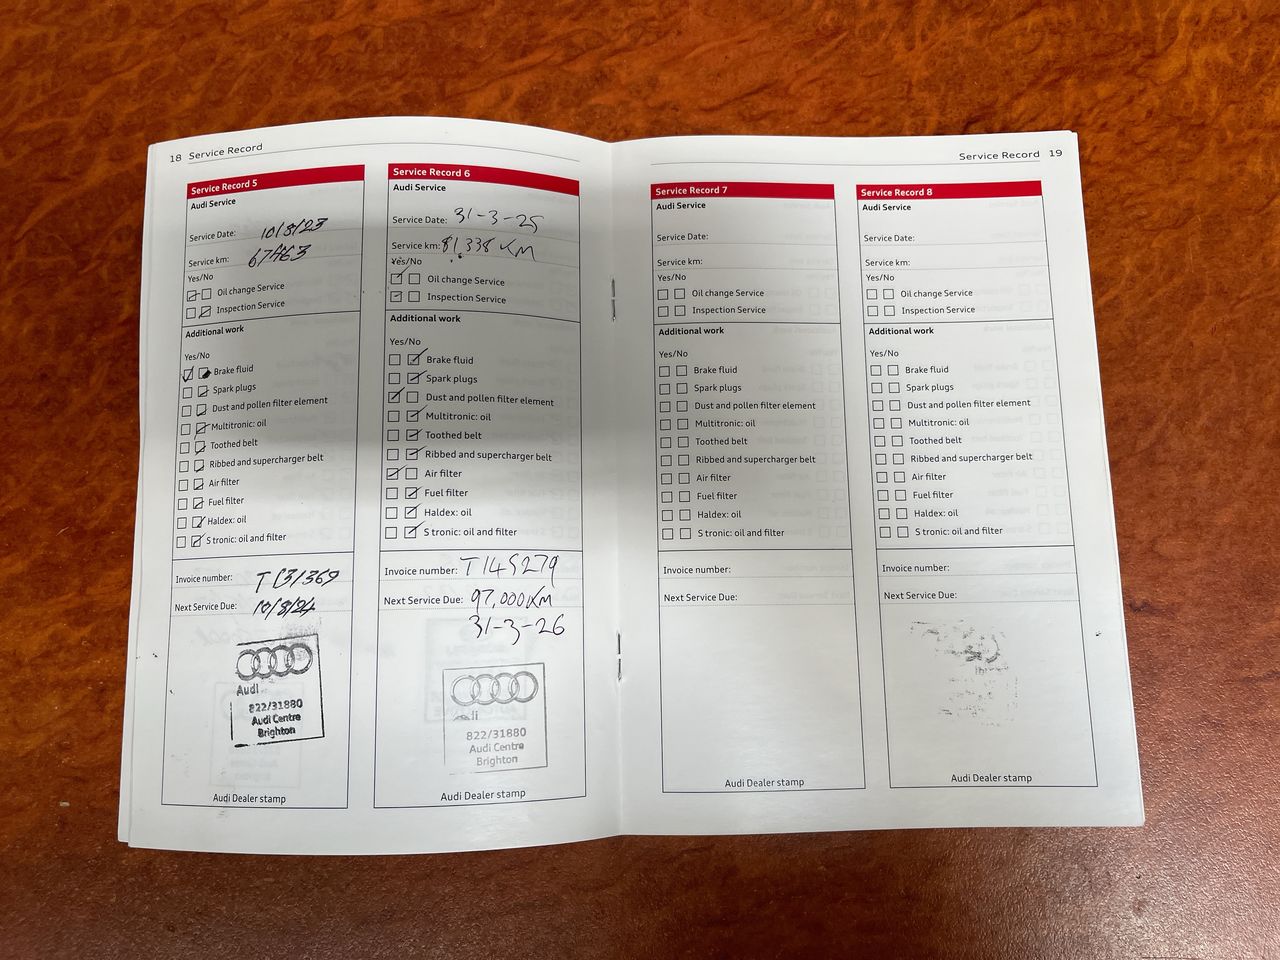 18 Service Record
Service Record 5
Audi Service
Service Date: 10/8/23
Service km: 67463
Yes/No
Oil change Service
Inspection Service
Additional work
Yes/No
Brake fluid
Spark plugs
Dust and pollen filter element
Multitronic: oil
Toothed belt
Ribbed and supercharger belt
Air filter
Fuel filter
Haldex: oil
S tronic: oil and filter
Invoice number:
Next Service Due: 10/8/24
Audi
822/31880
Audi Centre
Brighton
Audi Dealer stamp
Service Record 6
Audi Service
Service Date: 31-3-25
Service km: 81,338 KM
Yes/No
Oil change Service
Inspection Service
Additional work
Yes/No
Brake fluid
Spark plugs
Dust and pollen filter element
Multitronic: oil
Toothed belt
Ribbed and supercharger belt
Air filter
Fuel filter
Haldex: oil
S tronic: oil and filter
Invoice number: T145279
Next Service Due: 97,000KM
31-3-26
822/31880
Audi Centre
Brighton
Audi Dealer stamp
Service Record 19
Service Record 7
Audi Service
Service Date:
Service km:
Yes/No
Oil change Service
Inspection Service
Additional work
Yes/No
Brake fluid
Spark plugs
Dust and pollen filter element
Multitronic: oil
Toothed belt
Ribbed and supercharger belt
Air filter
Fuel filter
Haldex: oil
S tronic: oil and filter
Invoice number:
Next Service Due:
Audi Dealer stamp
Service Record 8
Audi Service
Service Date:
Service km:
Yes/No
Oil change Service
Inspection Service
Additional work
Yes/No
Brake fluid
Spark plugs
Dust and pollen filter element
Multitronic: oil
Toothed belt
Ribbed and supercharger belt
Air filter
Fuel filter
Haldex: oil
S tronic: oil and filter
Invoice number:
Next Service Due:
Audi Dealer stamp